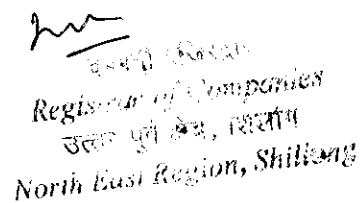 कम्पनी रजिस्ट्रार
Registrar of Companies
उत्तर पुर्व क्षेत्र, शिलांग
North East Region, Shillong